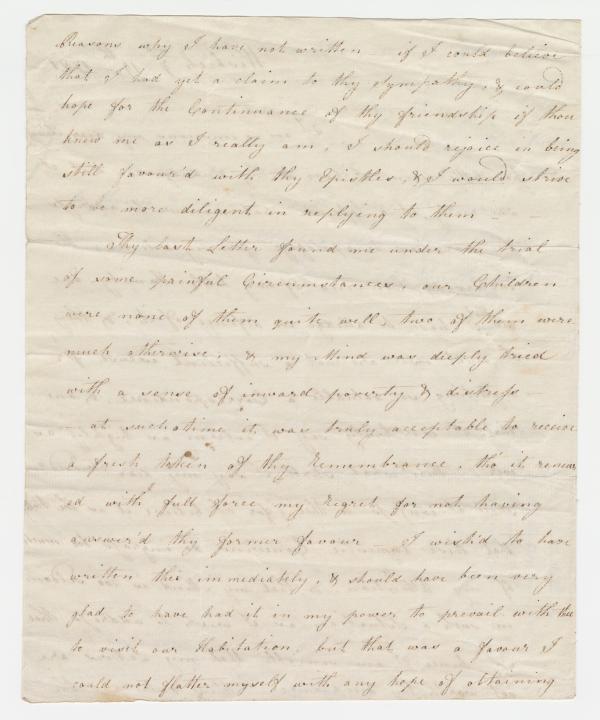 Reasons why I have not written – if I could believe
that I had yet a claim to thy Sympathy, & could
hope for the Continuance of thy friendship if thou
knew me as I really am, I should rejoice in being
still favour'd with thy Epistles, & I would strive
to be more diligent in replying to them –
Thy last Letter found me under the trial
of some painful Circumstances, our Children
were none of them quite well, two of them were
much otherwise, & my Mind was deeply tried
with a sense of inward poverty & distress –
– at such a time it was truly acceptable to receive
a fresh token of thy Remembrance, tho' it renew
ed with full force my Regret for not having
answer'd thy former favour – I wish'd to have
written thee immediately, & should have been very
glad to have had it in my power to prevail with thee
to visit our Habitation, but that was a favour I
could not flatter myself with any hope of obtaining